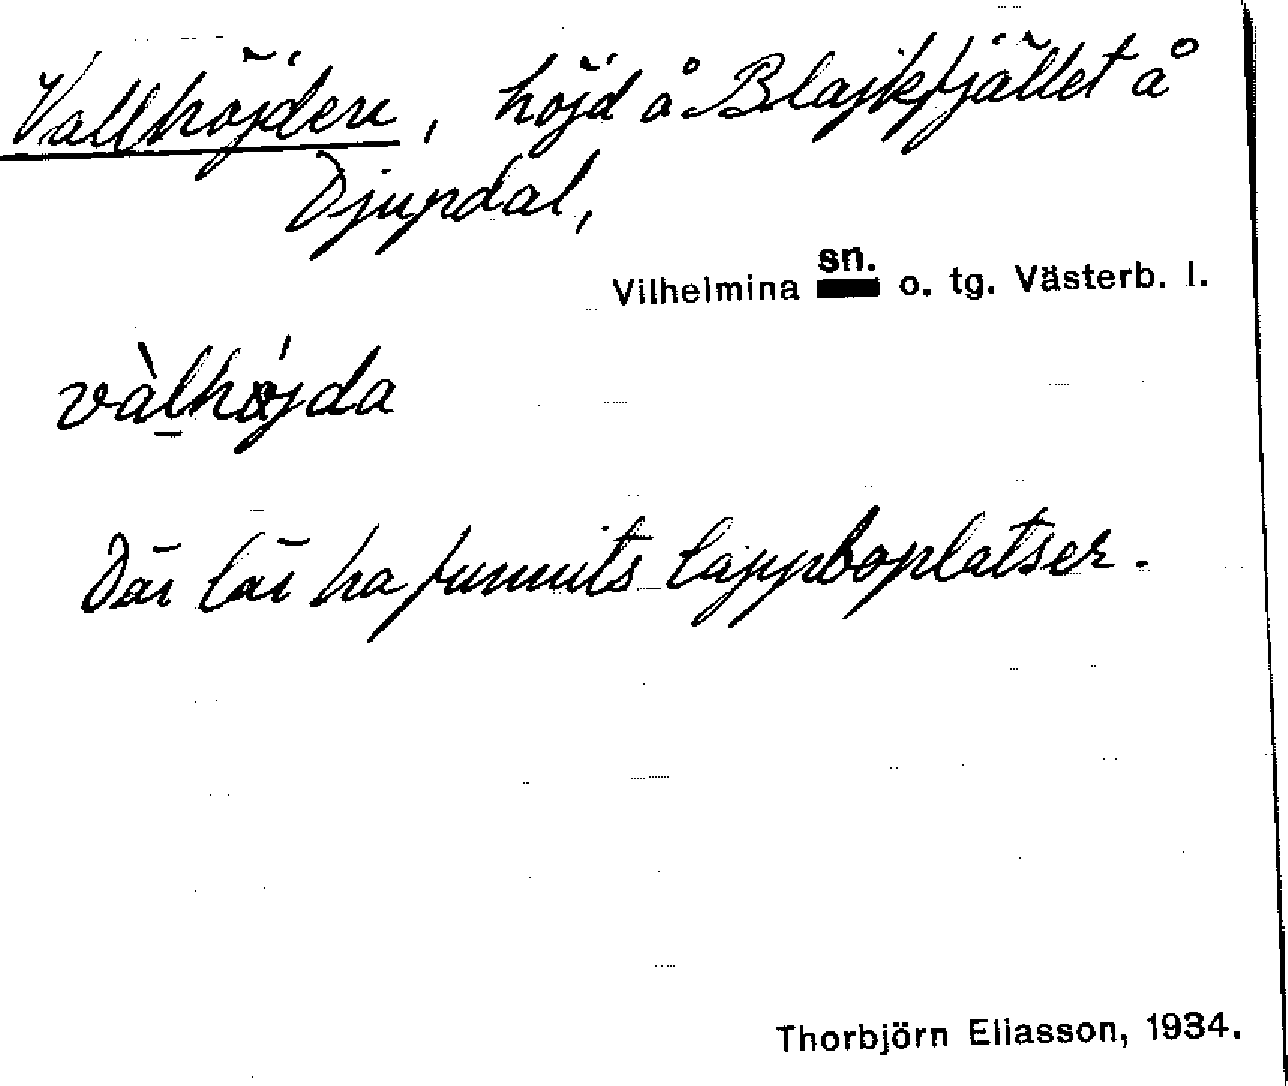 Vallhöjden, höjd å Blajkfjället å
Djupdal,
Vilhelmina sn. o. tg. Västerb. l.
vàlhǿjda
Där lär ha funnits lappboplatser.
Thorbjörn Eliasson, 1934.